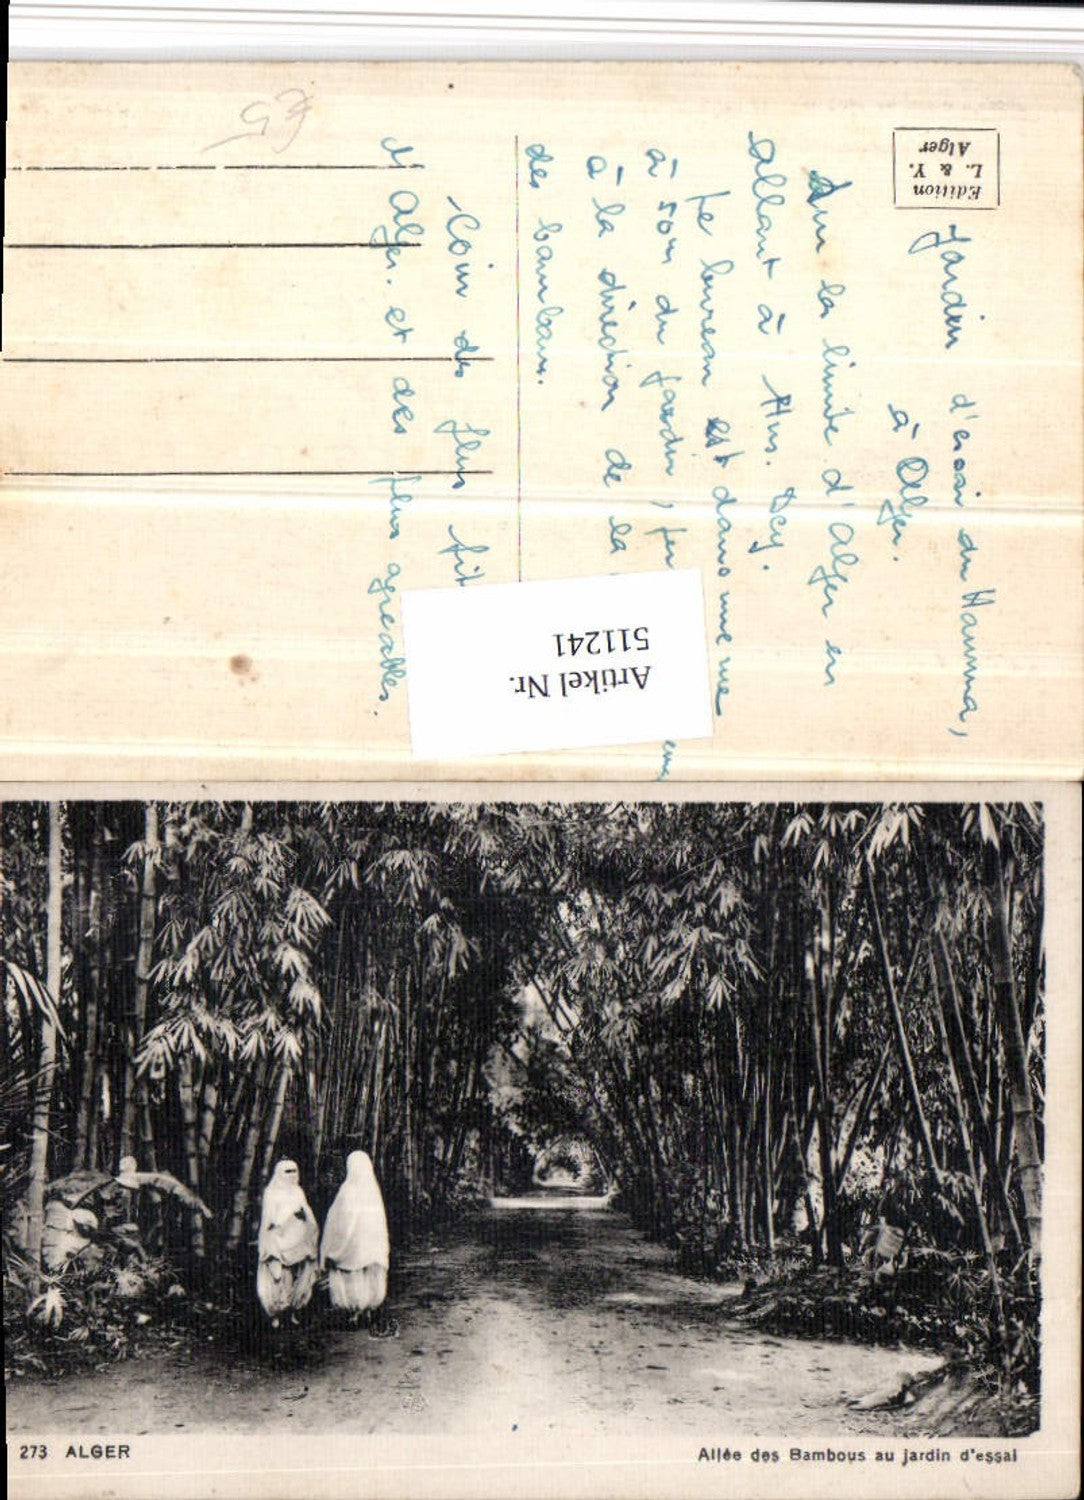 Edition
L. & Y.
Alger
Jardin d'essai du Hamma,
à Alger.
Sur la limite d'Alger en
allant à Hus. Dey.
Le bureau est dans une
à 50m du jardin,
à la direction de la
des bambous.
Coin des plus
d'Alger. et des plus agréables.
Artikel Nr.
511241
273 ALGER
Allée des Bambous au jardin d'essai